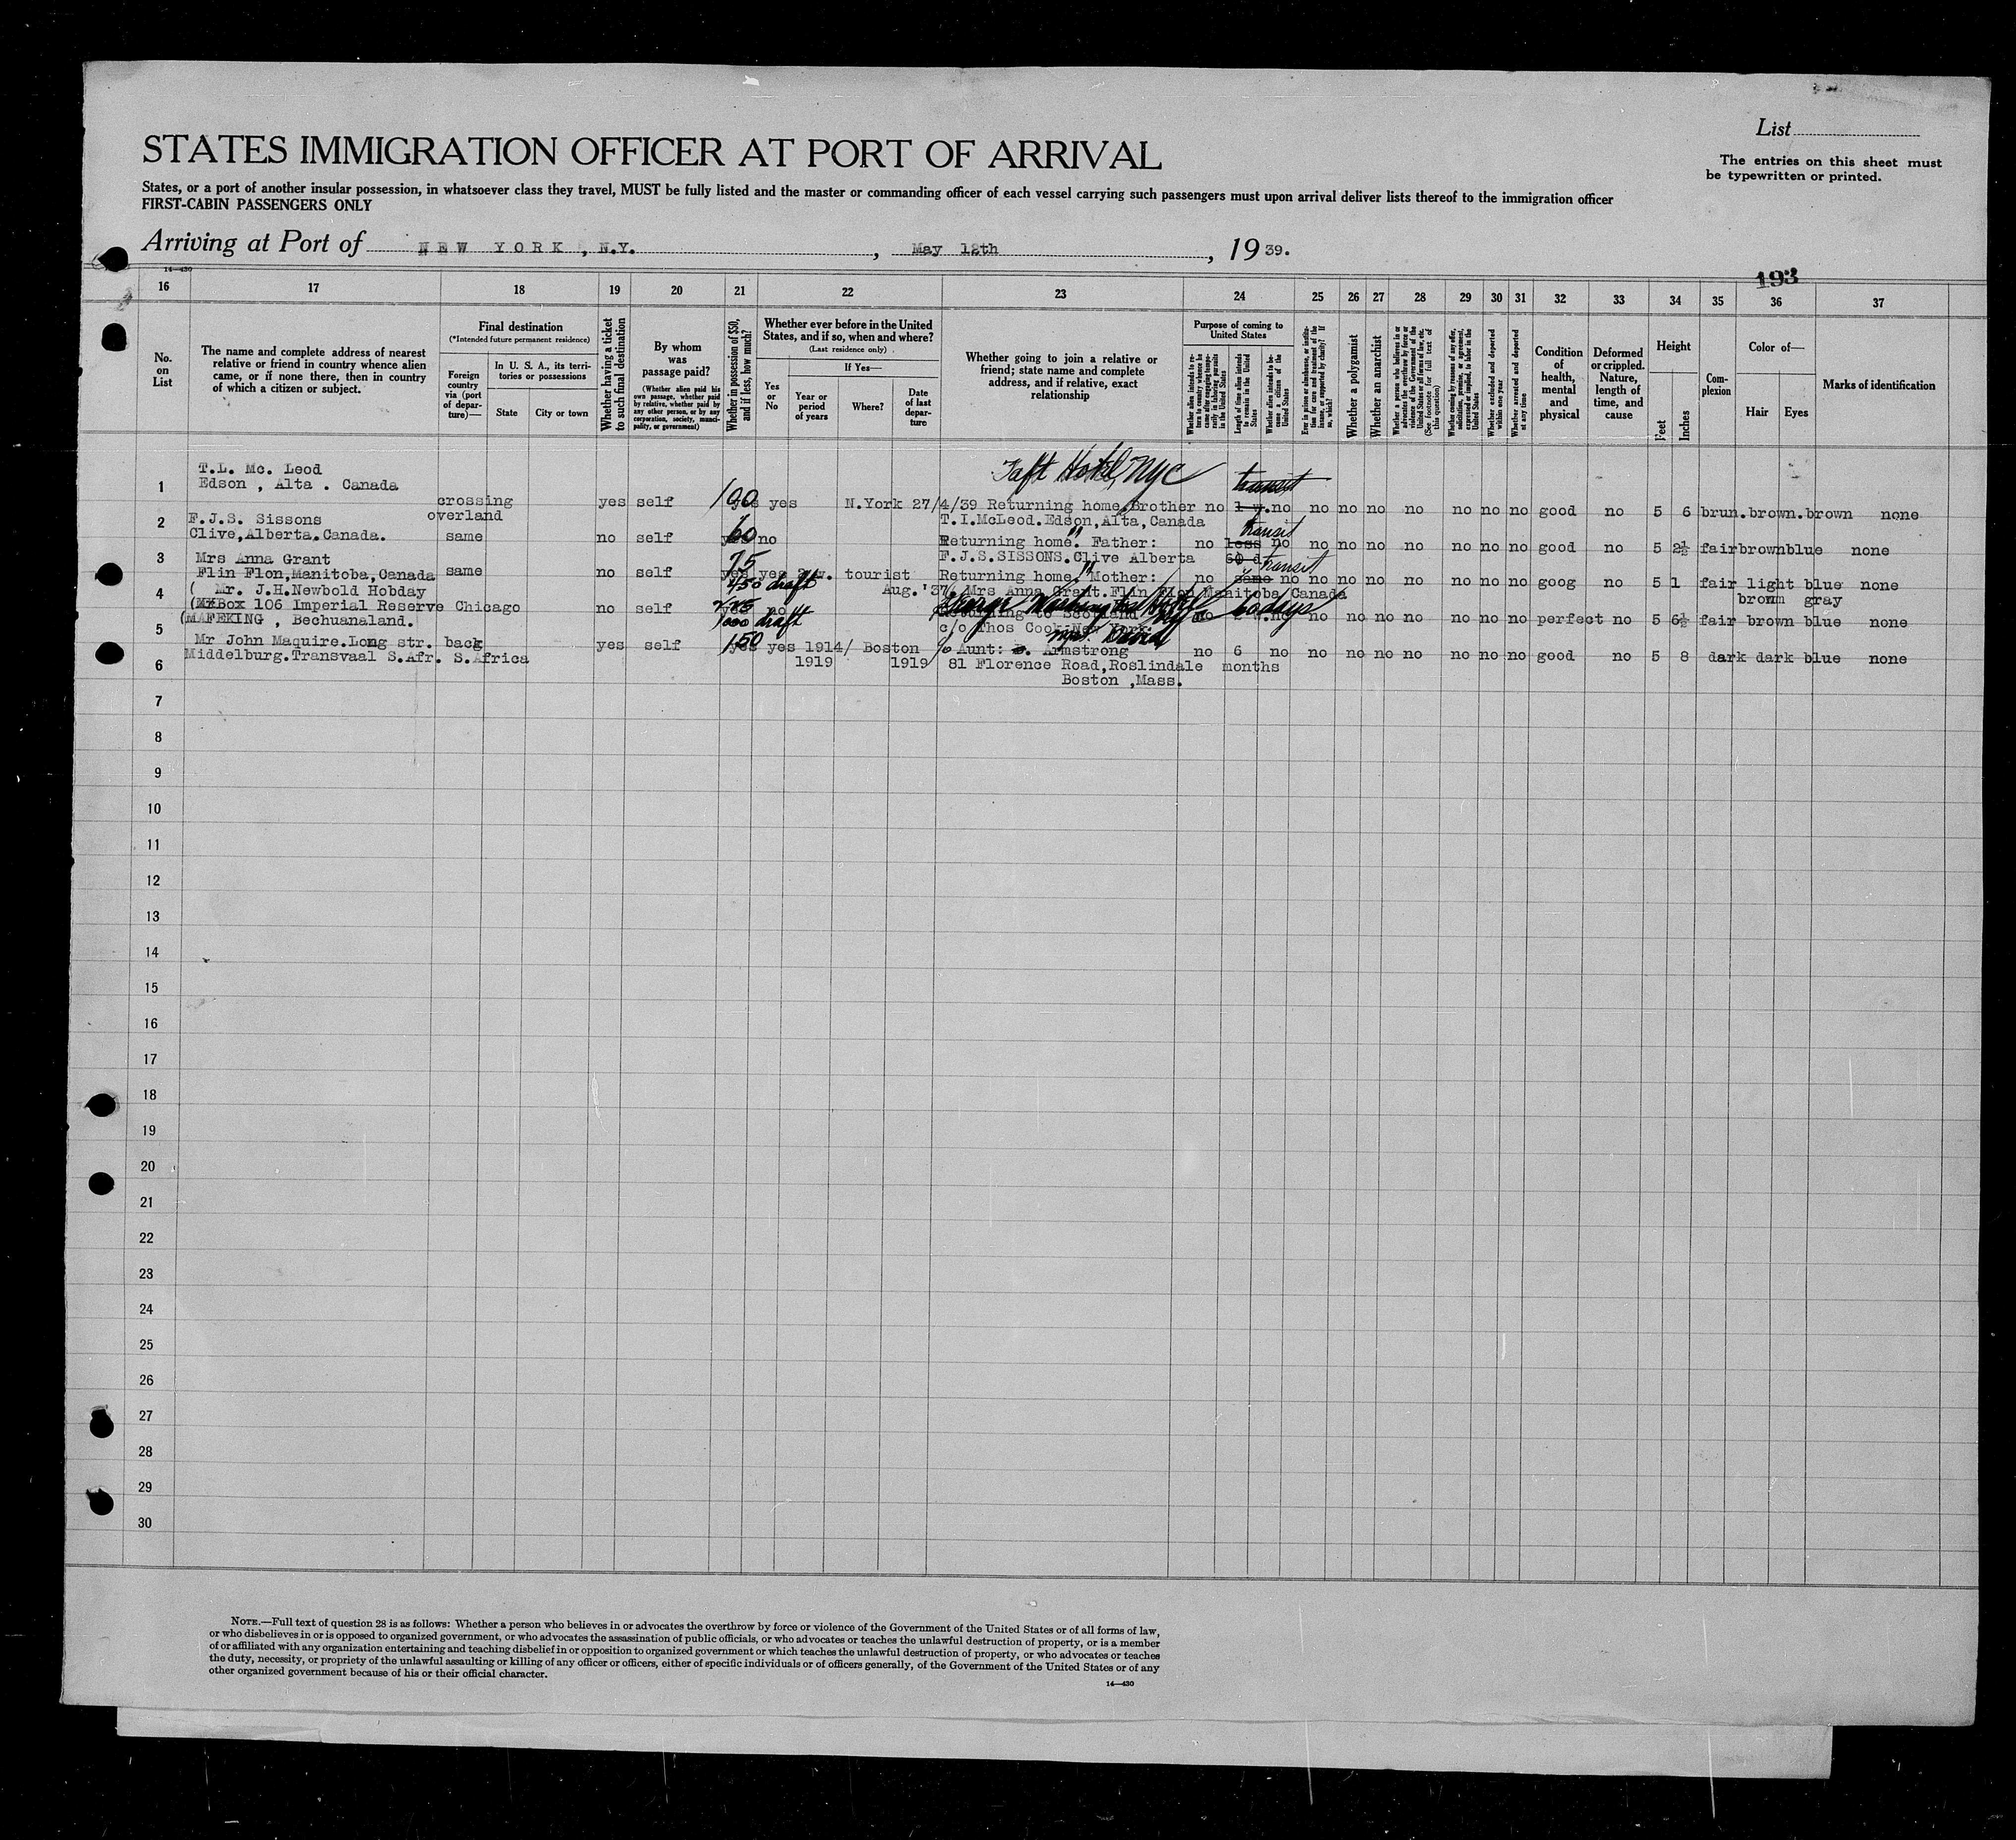 List
STATES IMMIGRATION OFFICER AT PORT OF ARRIVAL
The entries on this sheet must
be typewritten or printed.
States, or a port of another insular possession, in whatsoever class they travel, MUST be fully listed and the master or commanding officer of each vessel carrying such passengers must upon arrival deliver lists thereof to the immigration officer
FIRST-CABIN PASSENGERS ONLY
Arriving at Port of NEW YORK, N.Y. , May 12th , 19 39.
14—430
193
16 17 18 19 20 21 22 23 24 25 26 27 28 29 30 31 32 33 34 35 36 37
No. on List
The name and complete address of nearest
relative or friend in country whence alien
came, or if none there, then in country
of which a citizen or subject.
Final destination
(*Intended future permanent residence)
Foreign country via (port of departure)—
In U. S. A., its territories or possessions
State
City or town
Whether having a ticket to such final destination
By whom was passage paid?
(Whether alien paid his own passage, whether paid by relative, whether paid by any other person, or by any corporation, society, municipality, or government)
Whether in possession of $50, and if less, how much?
Whether ever before in the United States, and if so, when and where?
(Last residence only)
Yes or No
If Yes—
Year or period of years
Where?
Date of last departure
Whether going to join a relative or
friend; state name and complete
address, and if relative, exact
relationship
Purpose of coming to United States
Length of time alien intends to remain in the United States
Whether alien intends to become a citizen of the United States
Whether a polygamist
Whether an anarchist
Whether excluded and deported within one year
Whether arrested and deported at any time
Condition of health, mental and physical
Deformed or crippled. Nature, length of time, and cause
Height
Feet
Inches
Complexion
Color of—
Hair
Eyes
Marks of identification
Taft Hotel, NYC
1 T.L. Mc. Leod
Edson , Alta . Canada
crossing overland yes self 100 yes N.York 27/4/39 Returning home Brother no 1 no no no no no no no no good no 5 6 brun.brown.brown none
transit
T.I.McLeod.Edson,Alta,Canada
2 F.J.S. Sissons
Clive,Alberta.Canada.
same no self 60 no Returning home. Father: no less no no no no no no no no good no 5 2½ fair brown blue none
transit
F.J.S.SISSONS.Clive Alberta 60 d
3 Mrs Anna Grant
Flin Flon,Manitoba,Canada
same no self 75 yes tourist Returning home. Mother: no same no no no no no no no no goog no 5 1 fair light blue none
transit
Aug.'37 Mrs Anna Grant.Flin Flon Manitoba Canada
brown gray
4 ( Mr. J.H.Newbold Hobday
Box 106 Imperial Reserve
5 (MAFEKING , Bechuanaland.
Chicago no self 450 draft
1000 draft
no George Washington Hotel 60 days no no no no no no no no perfect no 5 6½ fair brown blue none
Returning to Scotland
c/o Thos Cook New York
6 Mr John Maquire.Long str.
Middelburg.Transvaal S.Afr.
back S.Africa yes self 150 yes 1914/ 1919 Boston 1919 Aunt: Armstrong no 6 months no no no no no no no no good no 5 8 dark dark blue none
Mrs. David
81 Florence Road,Roslindale
Boston ,Mass.
7
8
9
10
11
12
13
14
15
16
17
18
19
20
21
22
23
24
25
26
27
28
29
30
NOTE.—Full text of question 28 is as follows: Whether a person who believes in or advocates the overthrow by force or violence of the Government of the United States or of all forms of law,
or who disbelieves in or is opposed to organized government, or who advocates the assassination of public officials, or who advocates or teaches the unlawful destruction of property, or is a member
of or affiliated with any organization entertaining and teaching disbelief in or opposition to organized government or which teaches the unlawful destruction of property, or who advocates or teaches
the duty, necessity, or propriety of the unlawful assaulting or killing of any officer or officers, either of specific individuals or of officers generally, of the Government of the United States or of any
other organized government because of his or their official character.
14—430